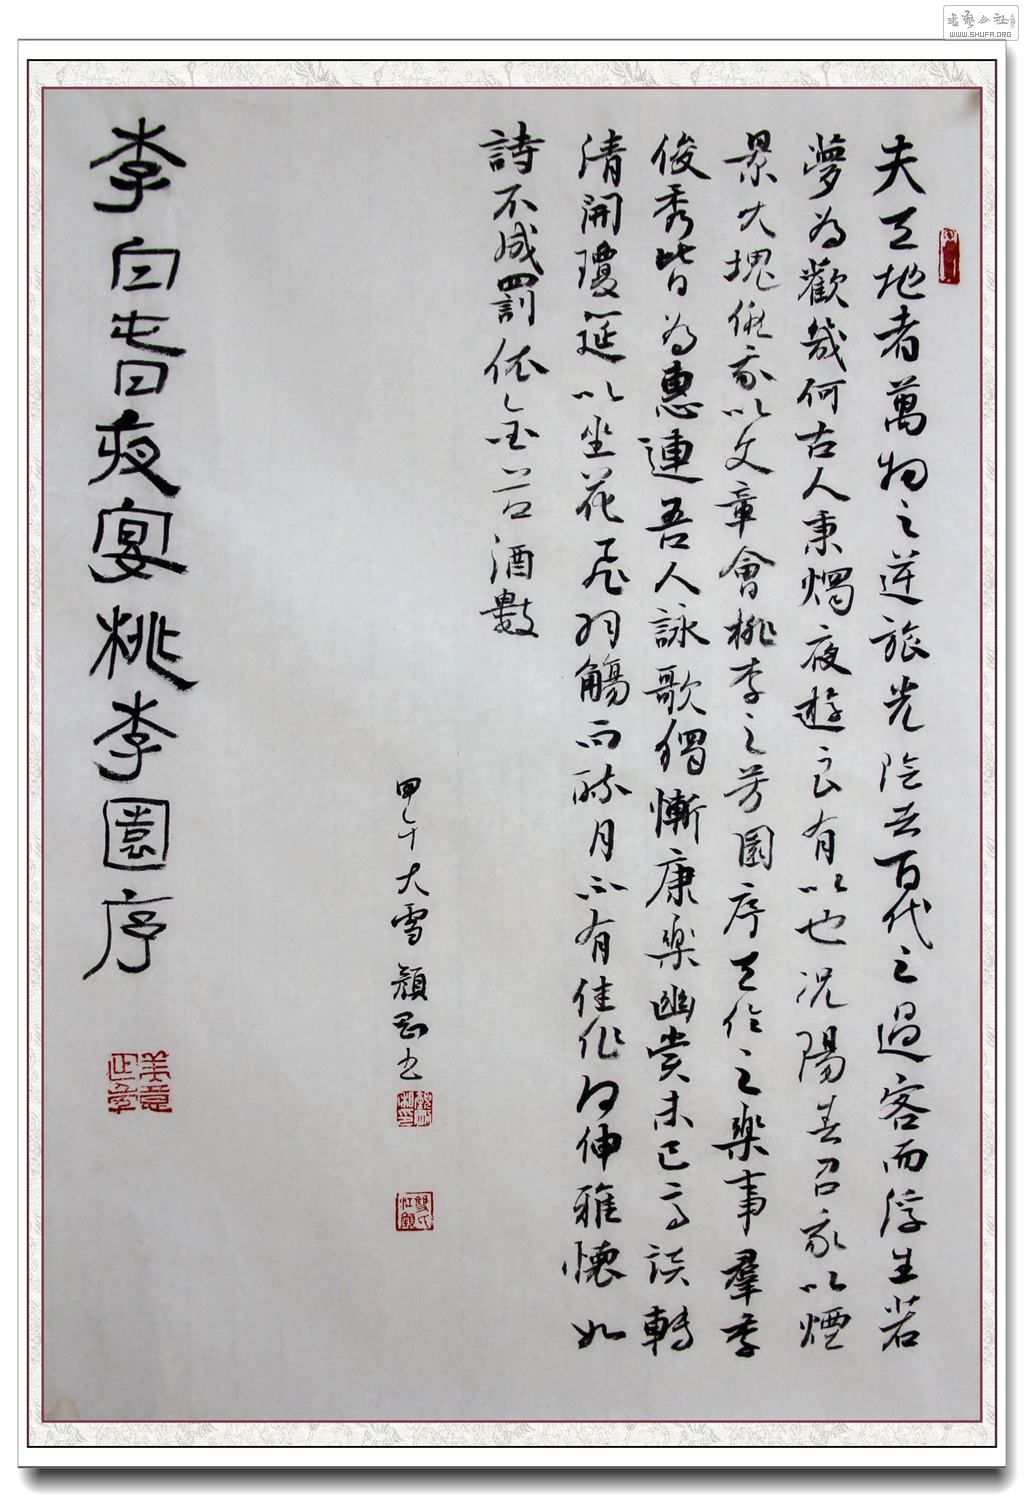 夫天地者萬物之逆旅光陰者百代之過客而浮生若
夢為歡幾何古人秉燭夜遊良有以也況陽春召我以煙
景大塊假我以文章會桃李之芳園序天倫之樂事羣季
俊秀皆為惠連吾人詠歌獨慚康樂幽賞未已高談轉
清開瓊筵以坐花飛羽觴而醉月不有佳作何伸雅懷如
詩不成罰依金谷酒數
甲午大雪顏书
李白春夜宴桃李園序
美意延年
书艺公社
WWW.SHUFA.ORG